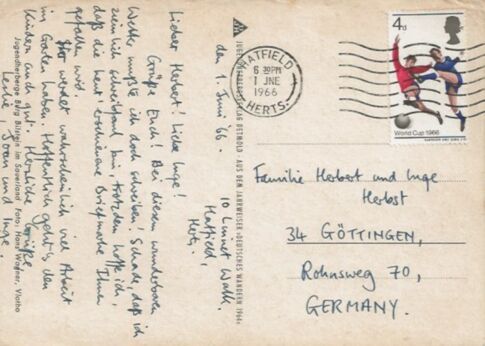 10 Linnet Walk,
Hatfield,
Herts.
den 1. Juni '66.
Lieber Herbert! Liebe Inge!
Grüße Euch! Bei diesem wunderbaren
Wetter mußte ich doch schreiben! Schade, daß ich
ziemlich schreibfaul bin, trotzdem hoffe ich,
daß die heut' erschienene Briefmarke Ihnen
gefallen wird.
Ihr werdet wahrscheinlich viel Arbeit
im Garten haben. Hoffentlich geht's den
Kindern auch gut. Herzliche Grüße
Leslie, Joan und Inge.
Jugendherberge Burg Bilstein im Sauerland Foto: Hans Wagner, Vlotho
JUGENDHERBERGSVERLAG DETMOLD · AUS DEM JAHRWEISER »DEUTSCHES WANDERN 1964«
HATFIELD
6 30PM
1 JNE
1966
HERTS.
4d
World Cup 1966
Familie Herbert und Inge
Herbst
34 GÖTTINGEN,
Rohnsweg 70,
GERMANY.